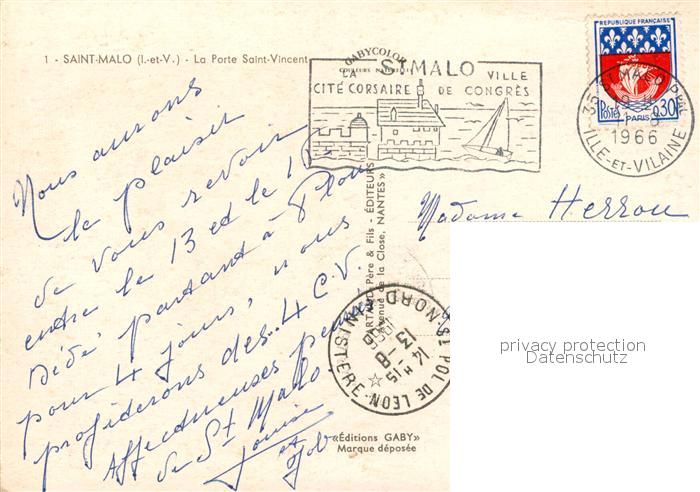 1 - SAINT-MALO (I.-et-V.) - La Porte Saint-Vincent
GABYCOLOR
LA St MALO VILLE
CITÉ CORSAIRE DE CONGRÈS
REPUBLIQUE FRANÇAISE
POSTES 0.30F
PARIS
1966
ILLE-ET-VILAINE
Nous aurons
le plaisir
de vous revoir
entre le 13 et le
Dédé, partant à
pour 4 jours, nous
profiterons des 4 C.V.
Affectueuses pensées
de St Malo
Louise
et Job
Madame Herrou
ARTAUD Père & Fils - ÉDITEURS
Avenue de la Close, NANTES»
St POL DE LEON
NORD FINISTÈRE
14 H 15
13 - 8
«Éditions GABY»
Marque déposée
privacy protection
Datenschutz